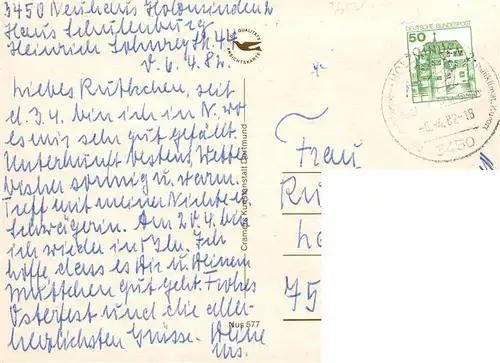 3450 Neuhaus Holzminden 2
Haus Schulenburg
Heinrich Sohnrey Str. 44
v. 6.4.82.
Liebes Ruthchen, seit
d. 3.4. bin ich in N. wo
es mir sehr gut gefällt.
Unterkunft bestens, Wetter
bisher sonnig u. warm.
Treff mit meiner Nichte u.
Schwägerin. Am 20.4. bin
ich wieder in Bln. Ich
hoffe, dass es Dir u. Deinem
Muttchen gut geht. Frohes
Osterfest und die aller-
herzlichsten Grüsse. Deine
Urs.
QUALITÄTS
ANSICHTSKARTE
Cramers Kunstanstalt Dortmund
Nus 577
DEUTSCHE BUNDESPOST
50
3450
Frau
Ru
75